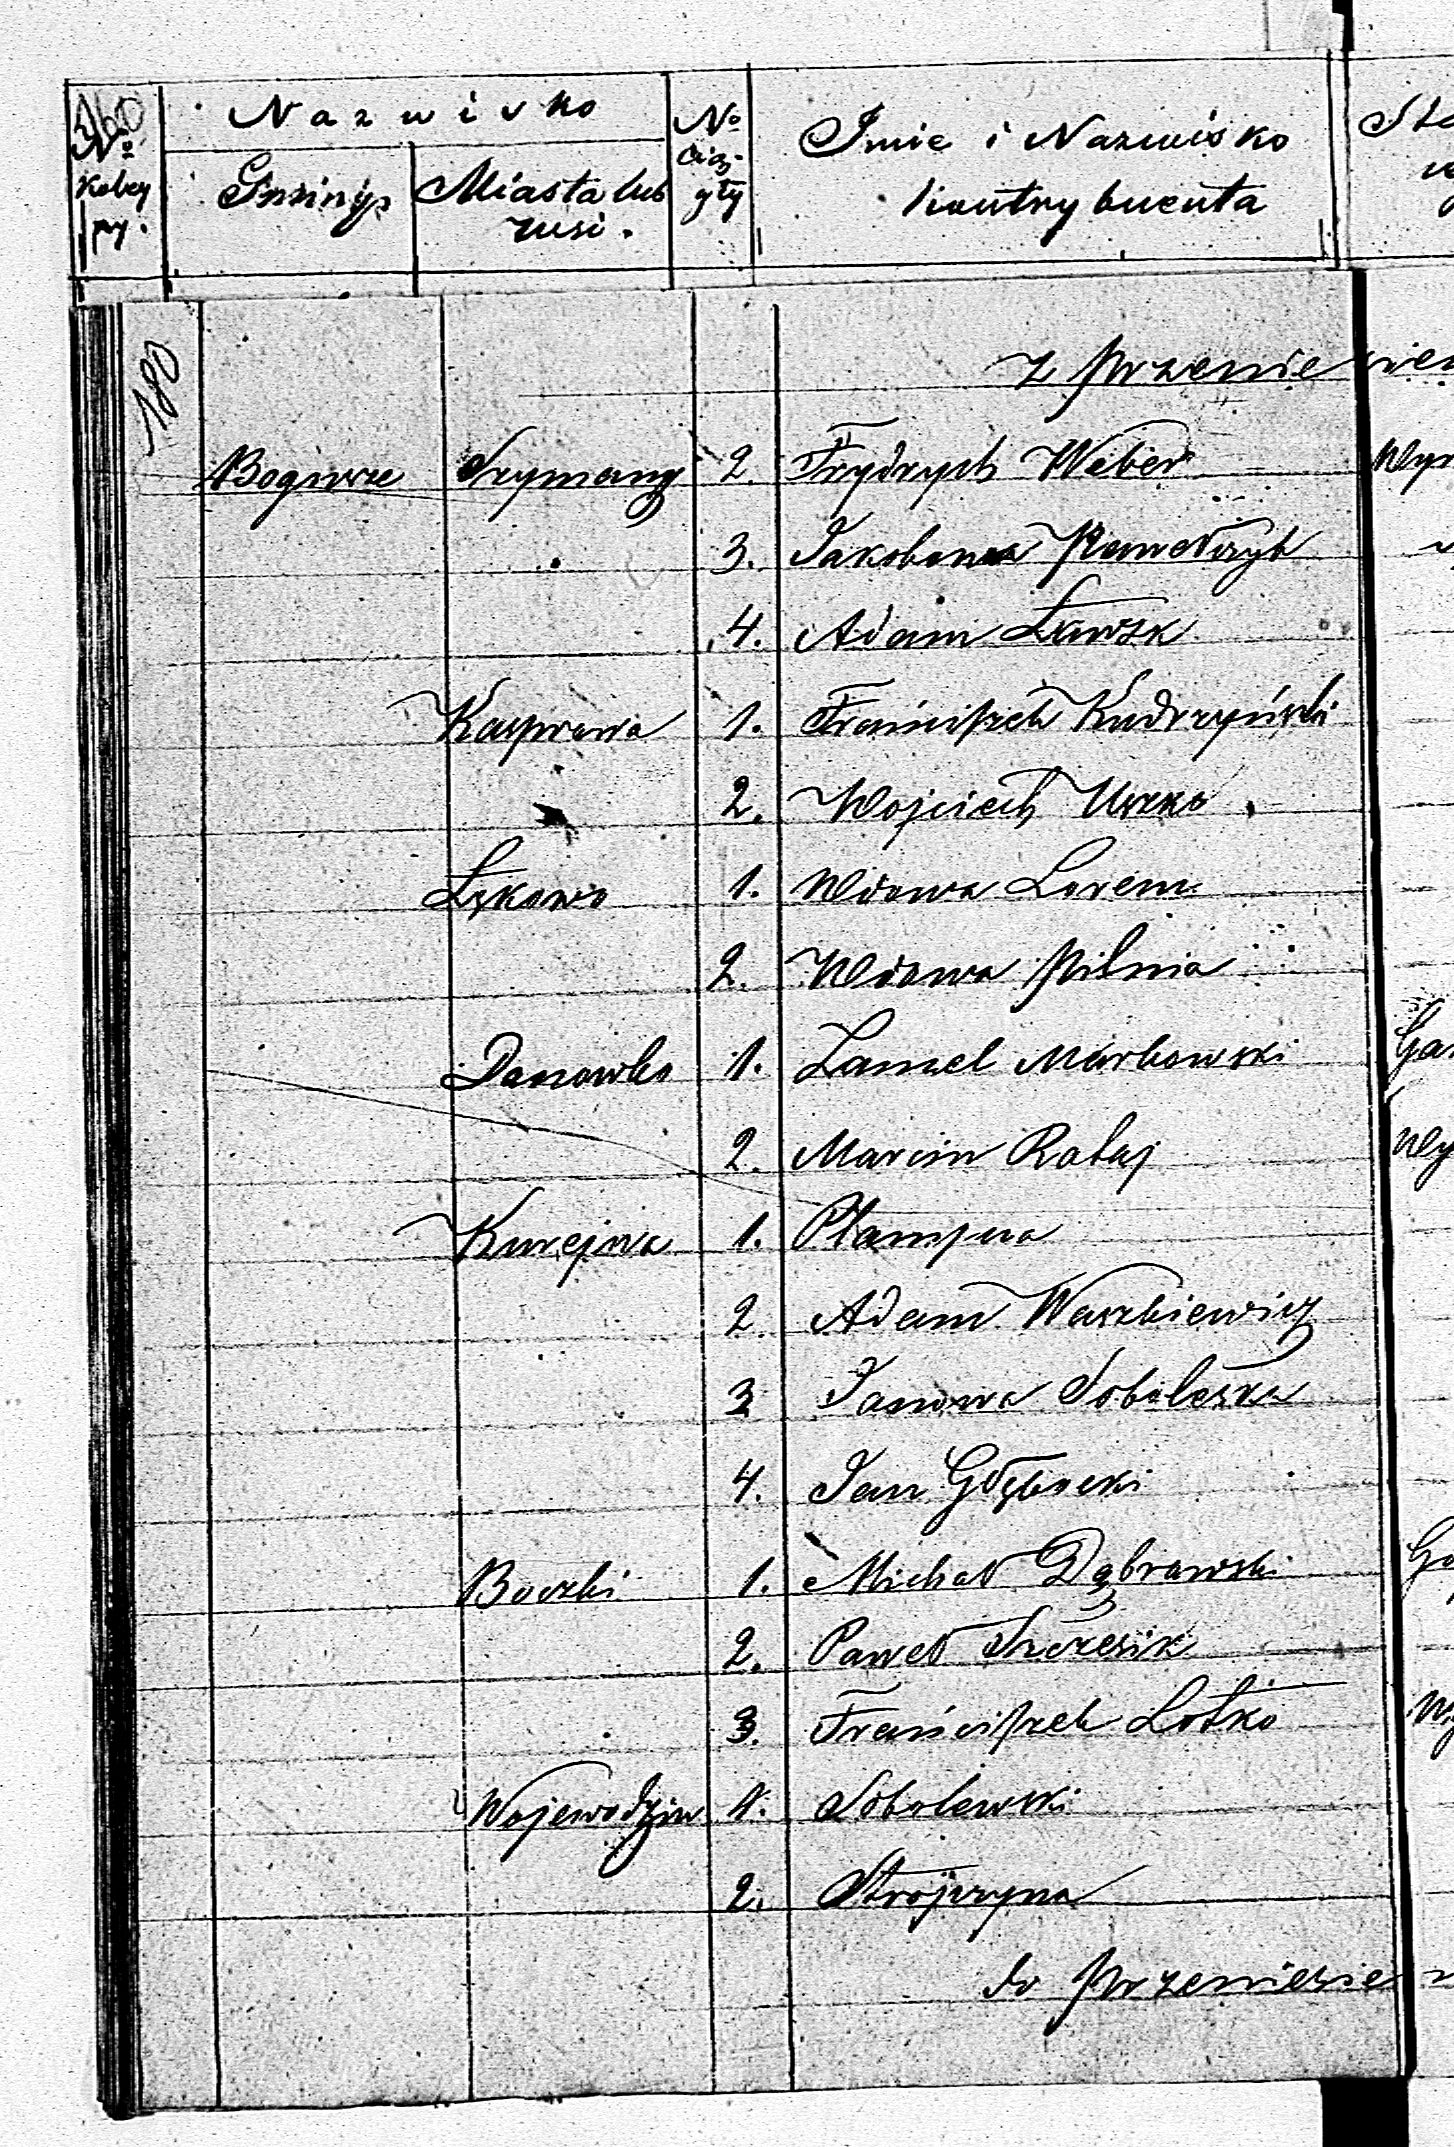 360
Nazwisko
№
Kolej
ny.
Gminy
Miasta lub
wsi.
№
ciąg-
gły
Imie i Nazwisko
kontrybuenta
180
z przenie
Bogusze Szymany 2. Frydrych Weber
3. Jakobowa Kawałczyk
4. Adam Ławsk
Kasprowa 1. Franciszek Kudrzyński
2. Wojciech Uszko
Łękowo 1. Wdowa Lorenc
2. Wdowa Pilnia
Danowko 1. Samel Markowski
2. Marcin Rataj
Kurejwa 1. Plampwa
2. Adam Waszkiewicz
3 Janowa Soboleska
4. Jan Głębocki
Boczki 1. Michał Dąbrowski
2. Paweł Szczesik
3. Franciszek Lotko
Wojewodzin 1. Sobolewski
2. Strojszyna
do przeniesie